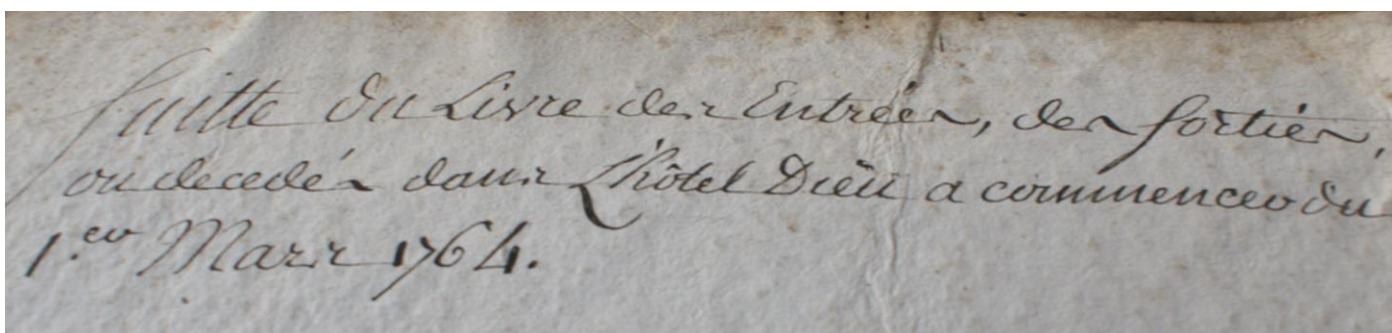 Suitte du Livre des Entrées, des sorties,
ou decedés dans L'hôtel Dieu a commencer du
1.er Mars 1764.